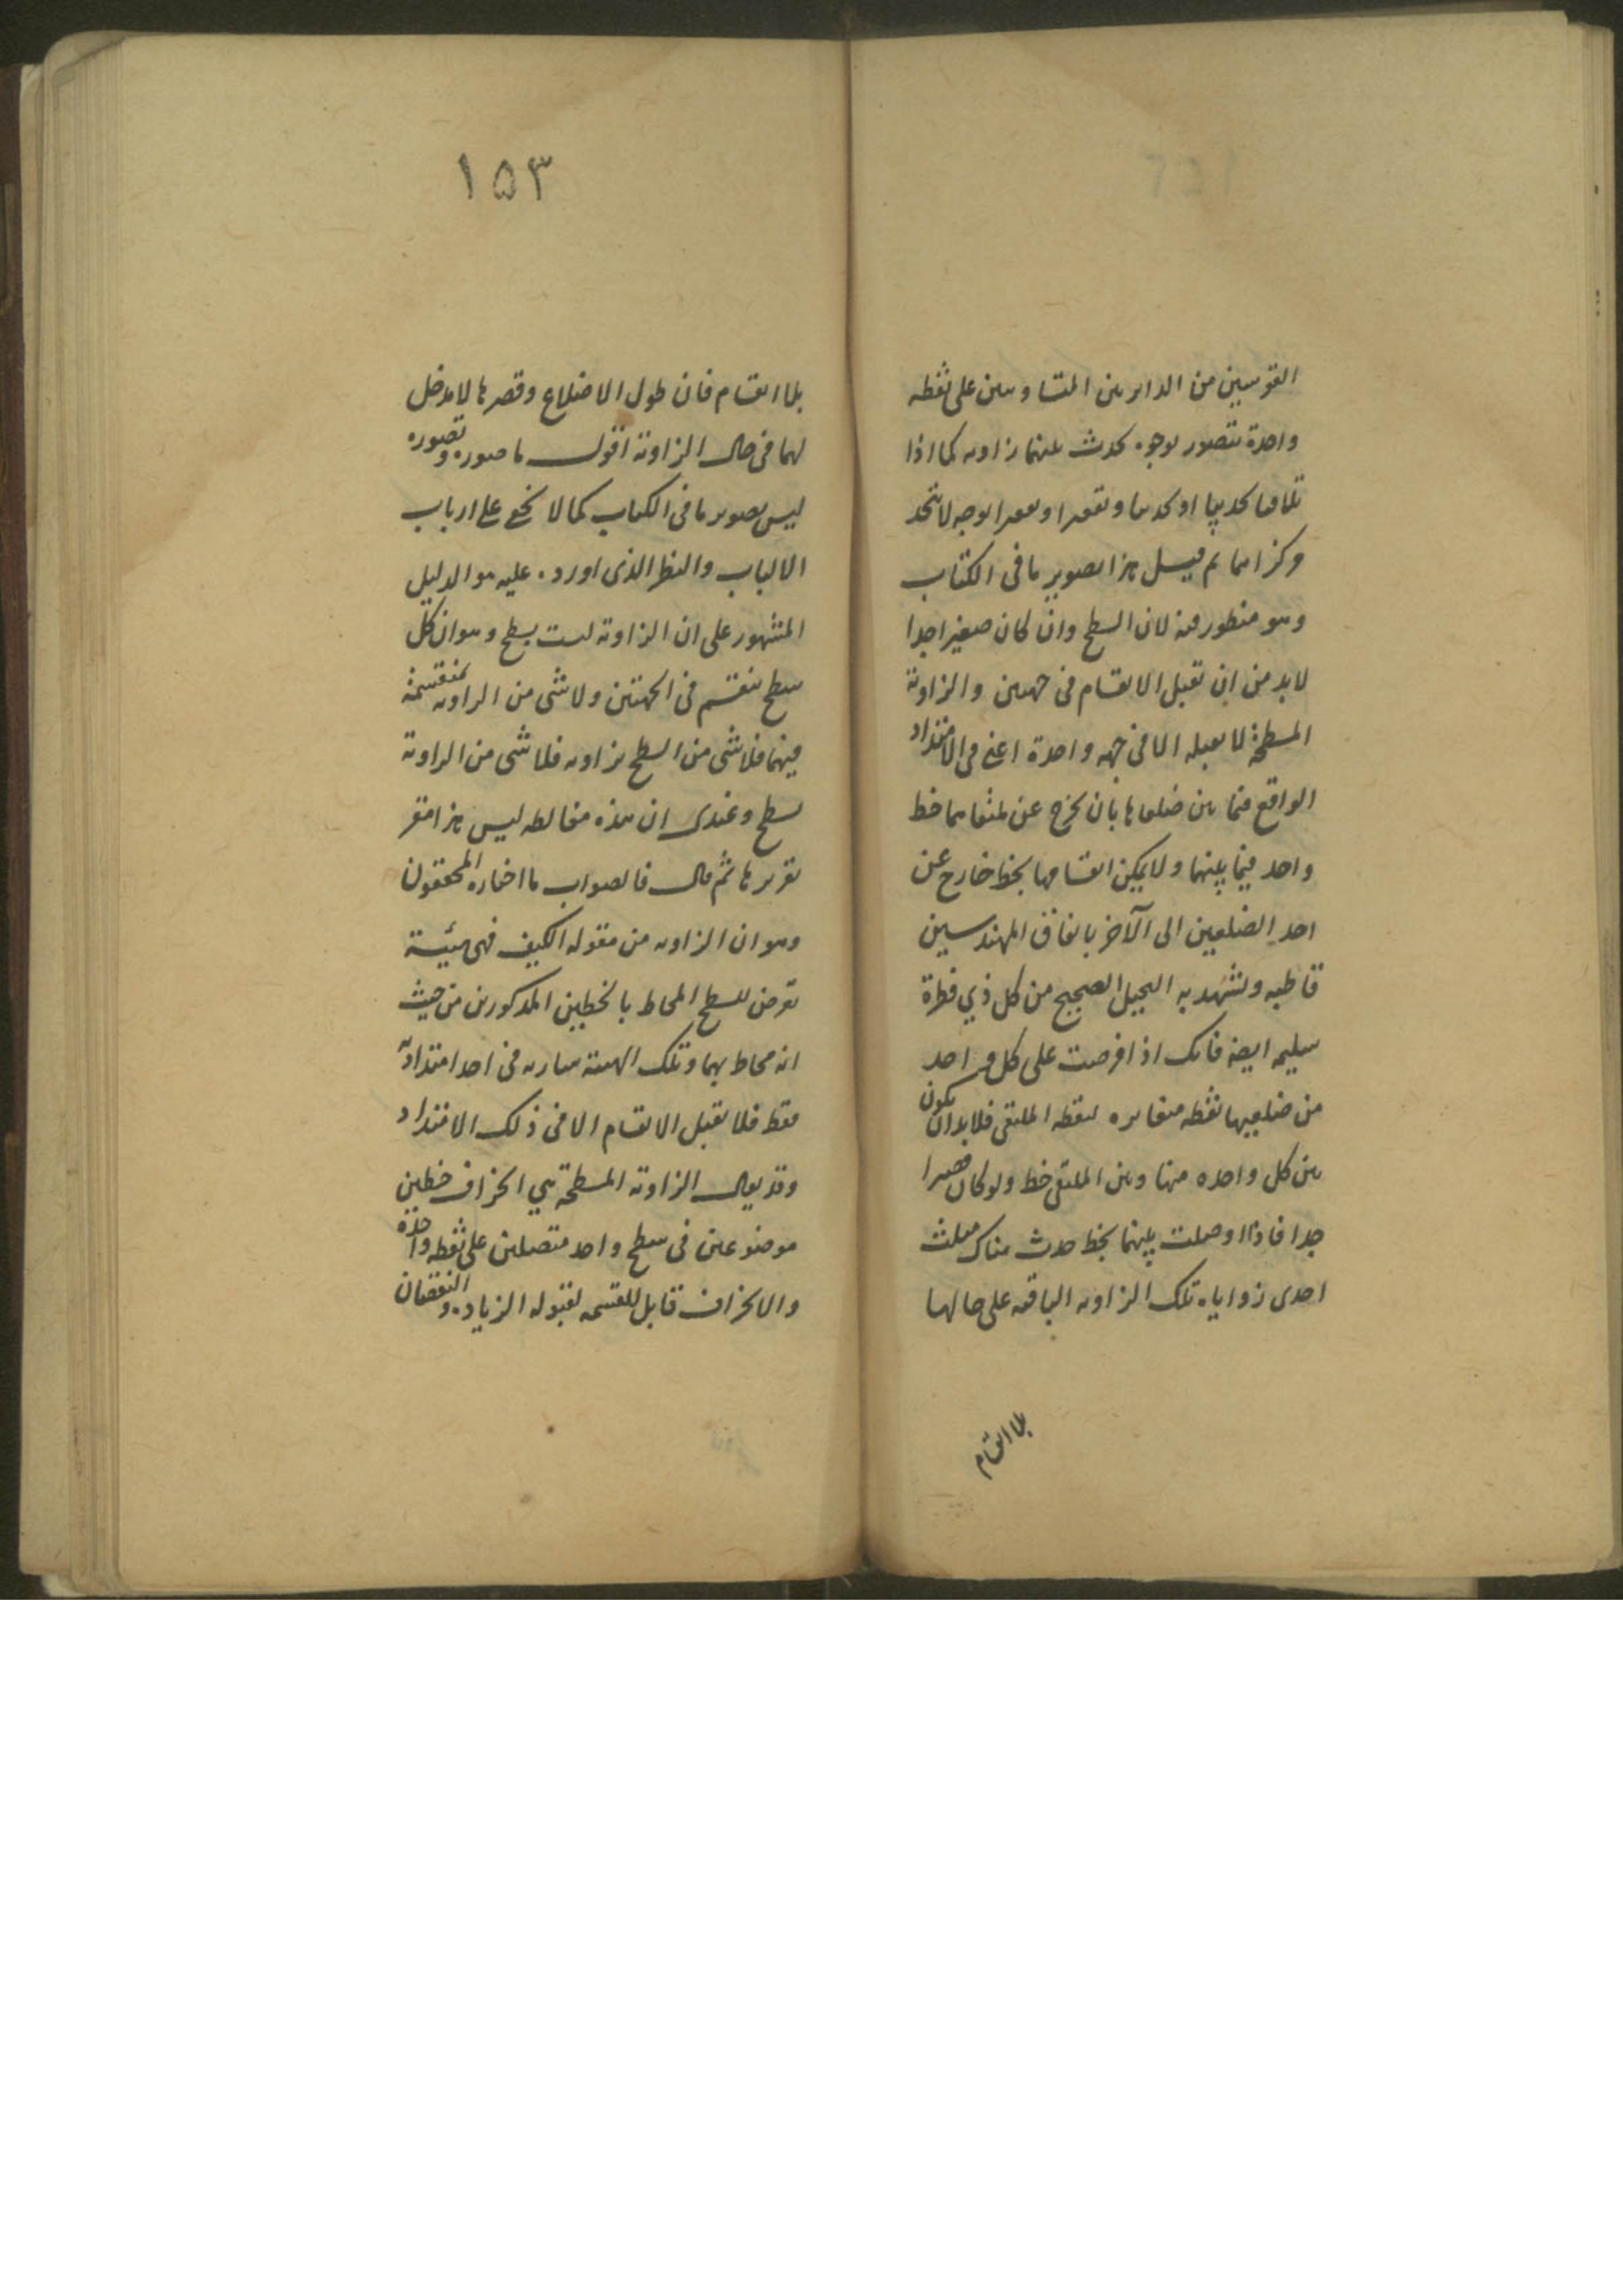 القوسين من الدايرتين المتساويتين على نقطه
واحدة تتصور بوجوه يحدث بينهما زاويه كما اذا
تلاقيا تحديبا او تحديبا وتقعيرا او تقعيرا بوجه لا يتحد
وكذا ثم قيل هذا تصوير ما فى الكتاب
وهو منظور فيه لان السطح وان كان صغيرا جدا
لا بد من ان تقبل الانقسام فى جهتين والزاوية
المسطحة لا تقبله الا فى جهه واحدة اعنى فى الامتداد
الواقع فيما بين ضلعاها بان يخرج عن ملتقاهما خط
واحد فيما بينهما ولا يمكن انقسامها بخط خارج عن
احد الضلعين الى الآخر باتفاق المهندسين
قاطبه وتشهد به التخيل الصحيح من كل ذي فطرة
سليمه ايضه فانك اذا فرضت على كل واحد
من ضلعيها نقطه مغايره لنقطه الملتقى فلا بد ان يكون
بين كل واحده منها وبين الملتقى خط ولو كان قصيرا
جدا فاذا اوصلت بينهما بخط حدث هناك مثلث
احدى زواياه تلك الزاويه الباقيه على حالها
بلا انقسام
١٥٣
بلا انقسام فان طول الاضلاع وقصرها لا مدخل
لهما فى حال الزاوية اقول ما صوره وتصوره
ليس تصوير ما فى الكتاب كما لا يخفى على ارباب
الالباب والنظر الذى اورده عليه هو الدليل
المشهور على ان الزاوية ليست بسطح وهو ان كل
سطح منقسم فى الجهتين ولا شى من الزاويه بمنقسمة
فيهما فلا شى من السطح بزاويه فلا شى من الزاوية
بسطح وعندى ان هذه مغالطه ليس هذا مقر
تقريرها ثم قال فالصواب ما اختاره المحققون
وهو ان الزاويه من مقوله الكيف فهى هيئية
تعرض للسطح المحاط بالخطين المذكورين من حيث
انه محاط بهما وتلك الهيئة ساريه فى احد امتداديه
فقط فلا تقبل الانقسام الا فى ذلك الامتداد
وقد يقال الزاوية المسطحة هي انحراف خطين
موضوعين فى سطح واحد متصلين على نقطه واحدة
والانحراف قابل للقسمه لقبوله الزياده والنقصان